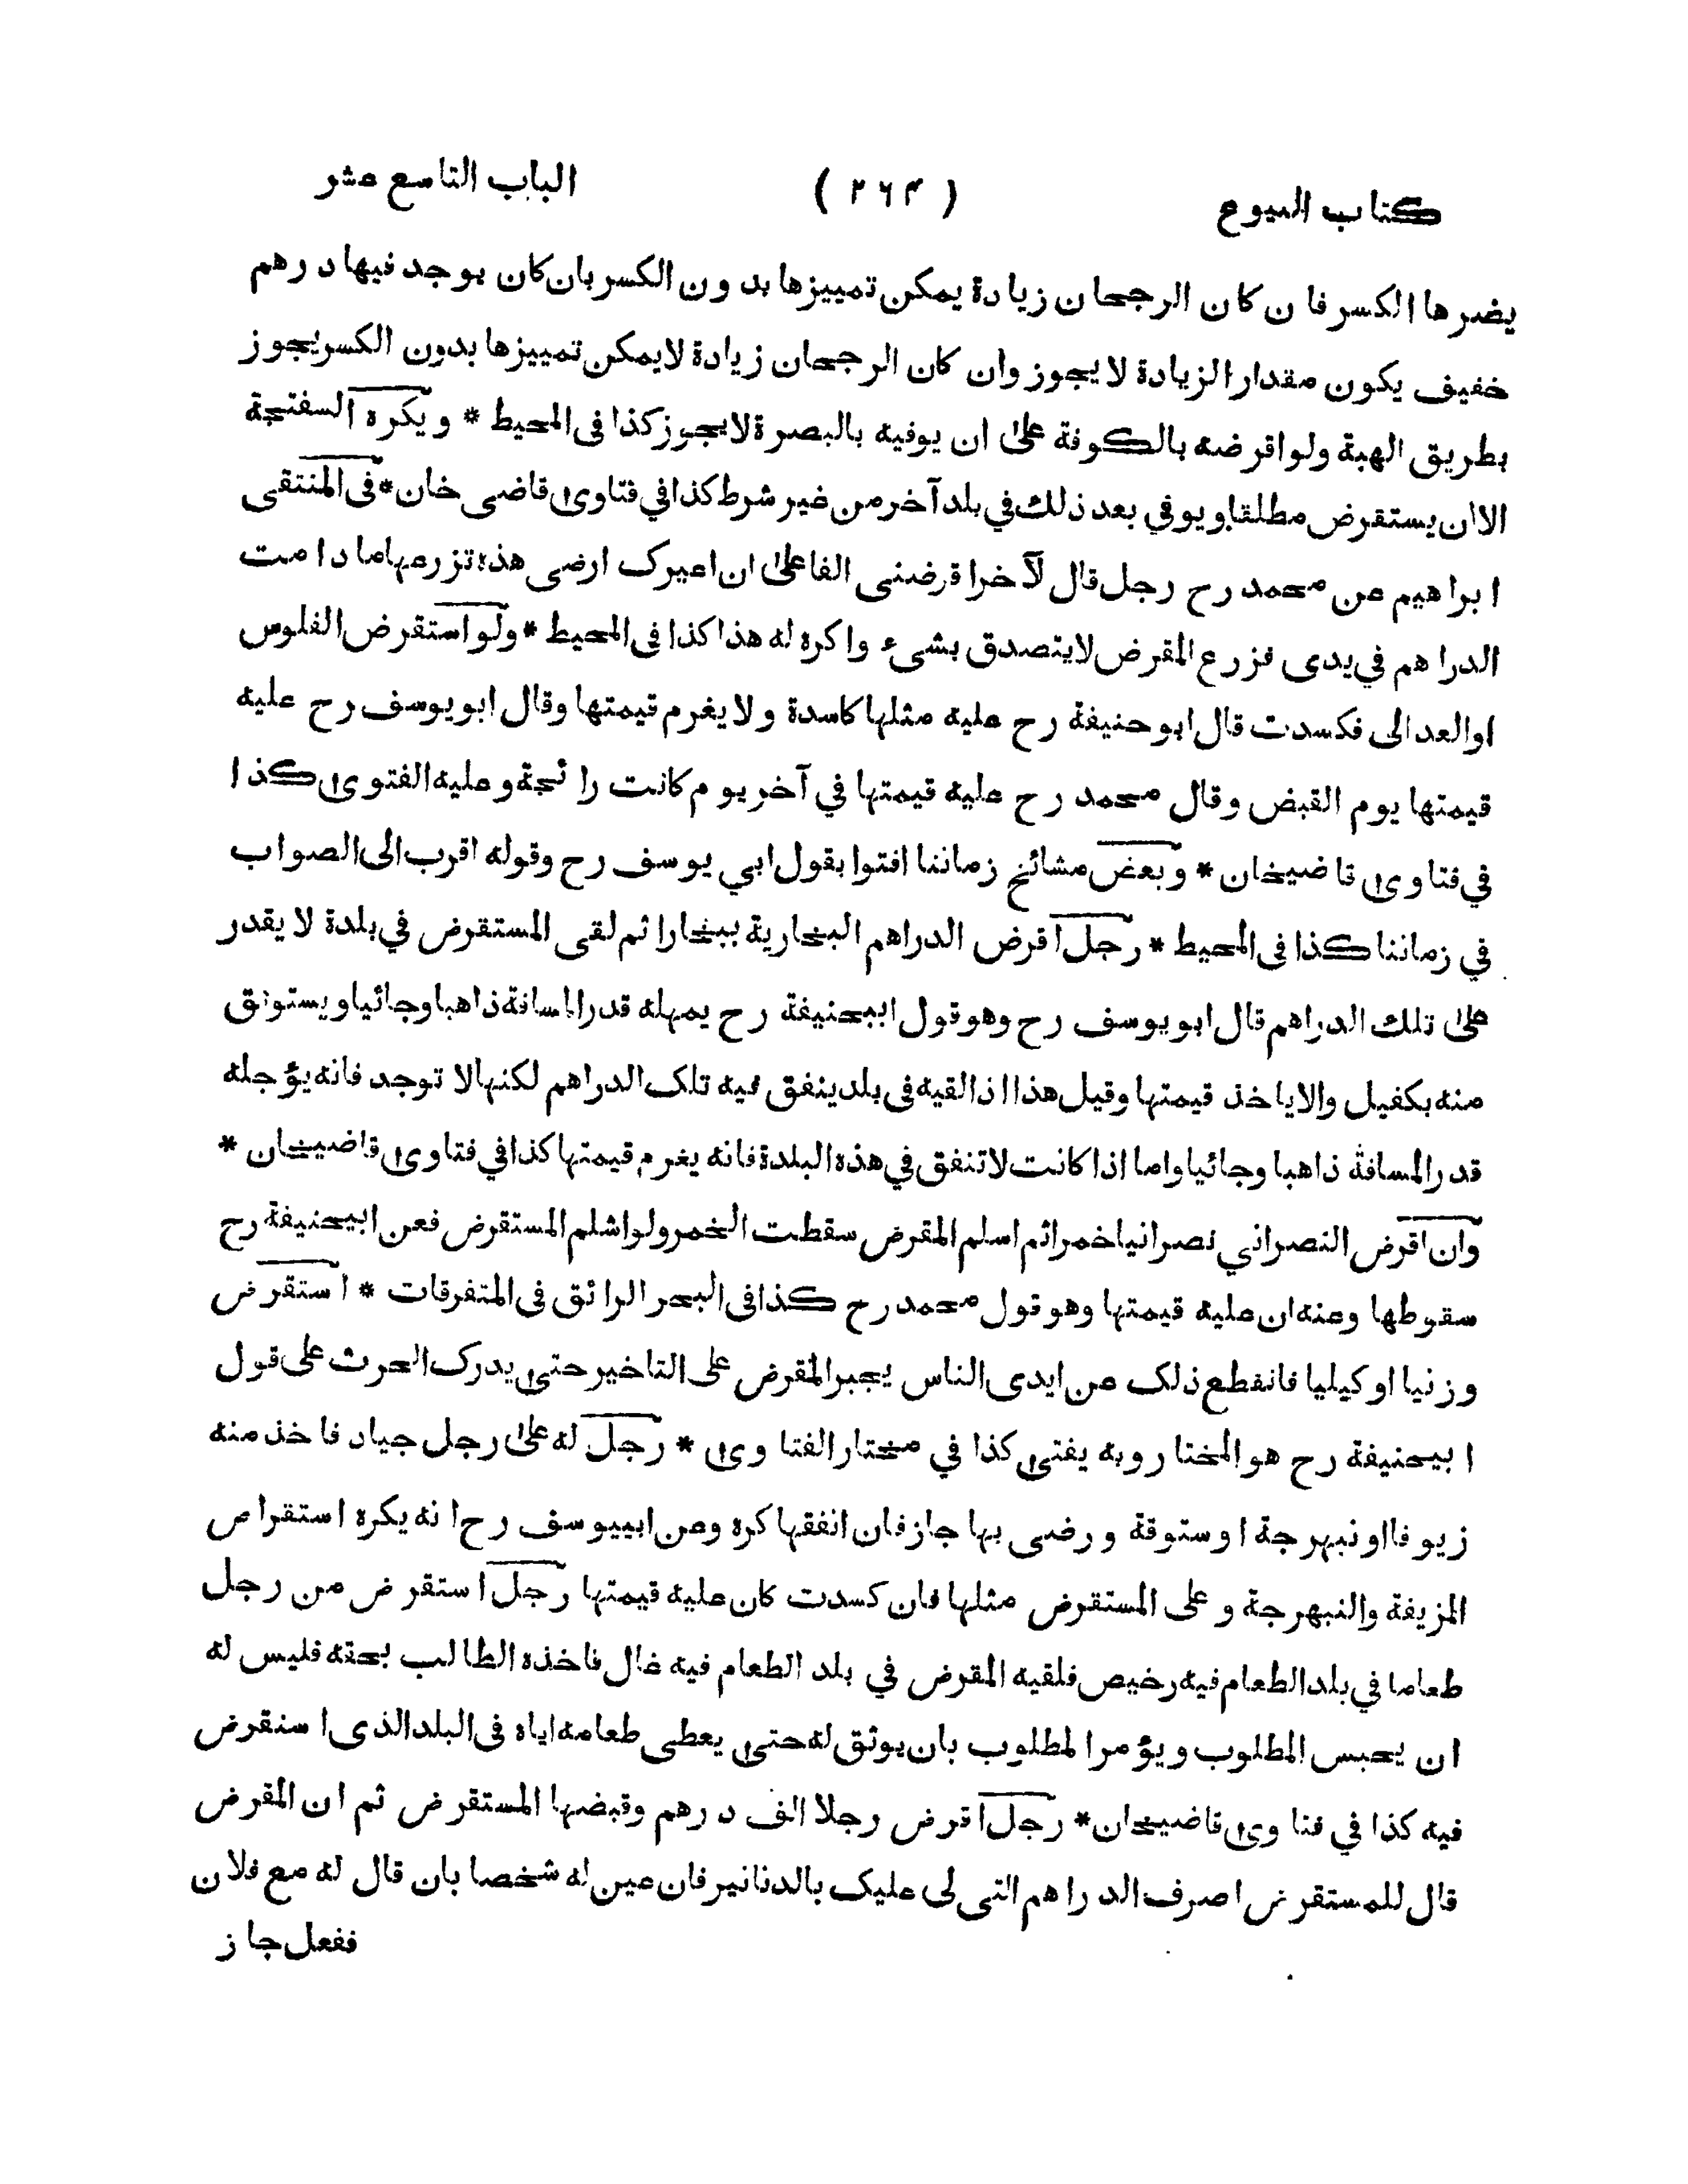 كتاب البيوع ( ٢٦٤ ) الباب التاسع عشر
يضرها الكسر فان كان الرجحان زيادة يمكن تمييزها بدون الكسر بان كان يوجد فيها درهم
خفيف يكون مقدار الزيادة لا يجوز وان كان الرجحان زيادة لا يمكن تمييزها بدون الكسر يجوز
بطريق الهبة ولو اقرضه بالكوفة على ان يوفيه بالبصرة لا يجوز كذا فى المحيط * ويكره السفتجة
الا ان يستقرض مطلقا ويوفي بعد ذلك في بلد آخر من غير شرط كذا في فتاوى قاضى خان * فى المنتقى
ابراهيم عن محمد رح رجل قال لآخر اقرضنى الفا على ان اعيرك ارضى هذه تزرعها ما دامت
الدراهم في يدى فزرع المقرض لا يتصدق بشىء واكره له هذا كذا فى المحيط * ولو استقرض الفلوس
او العدالى فكسدت قال ابو حنيفة رح عليه مثلها كاسدة ولا يغرم قيمتها وقال ابو يوسف رح عليه
قيمتها يوم القبض وقال محمد رح عليه قيمتها في آخر يوم كانت رائجة وعليه الفتوى كذا
في فتاوى قاضيخان * وبعض مشائخ زماننا افتوا بقول ابي يوسف رح وقوله اقرب الى الصواب
في زماننا كذا فى المحيط * رجل اقرض الدراهم البخارية ببخارا ثم لقى المستقرض في بلدة لا يقدر
على تلك الدراهم قال ابو يوسف رح وهو قول ابيحنيفة رح يمهله قدر المسافة ذاهبا وجائيا ويستوثق
منه بكفيل والا ياخذ قيمتها وقيل هذا اذا لقيه فى بلد ينفق فيه تلك الدراهم لكنها لا توجد فانه يؤجله
قدر المسافة ذاهبا وجائيا واما اذا كانت لا تنفق في هذه البلدة فانه يغرم قيمتها كذا في فتاوى قاضيخان *
وان اقرض النصراني نصرانيا خمرا ثم اسلم المقرض سقطت الخمر ولو اسلم المستقرض فعن ابيحنيفة رح
سقوطها وعنه ان عليه قيمتها وهو قول محمد رح كذا فى البحر الرائق فى المتفرقات * استقرض
وزنيا او كيليا فانقطع ذلك عن ايدى الناس يجبر المقرض على التاخير حتى يدرك الحرث على قول
ابيحنيفة رح هو المختار وبه يفتى كذا في مختار الفتاوى * رجل له على رجل جياد فاخذ منه
زيوفا او نبهرجة او ستوقة ورضى بها جاز فان انفقها كره وعن ابييوسف رح انه يكره استقراض
المزيفة والنبهرجة وعلى المستقرض مثلها فان كسدت كان عليه قيمتها رجل استقرض من رجل
طعاما في بلد الطعام فيه رخيص فلقيه المقرض في بلد الطعام فيه غال فاخذه الطالب بحقه فليس له
ان يحبس المطلوب ويؤمر المطلوب بان يوثق له حتى يعطى طعامه اياه فى البلد الذى استقرض
فيه كذا في فتاوى قاضيخان * رجل اقرض رجلا الف درهم وقبضها المستقرض ثم ان المقرض
قال للمستقرض اصرف الدراهم التى لى عليك بالدنانير فان عين له شخصا بان قال له مع فلان
ففعل جاز